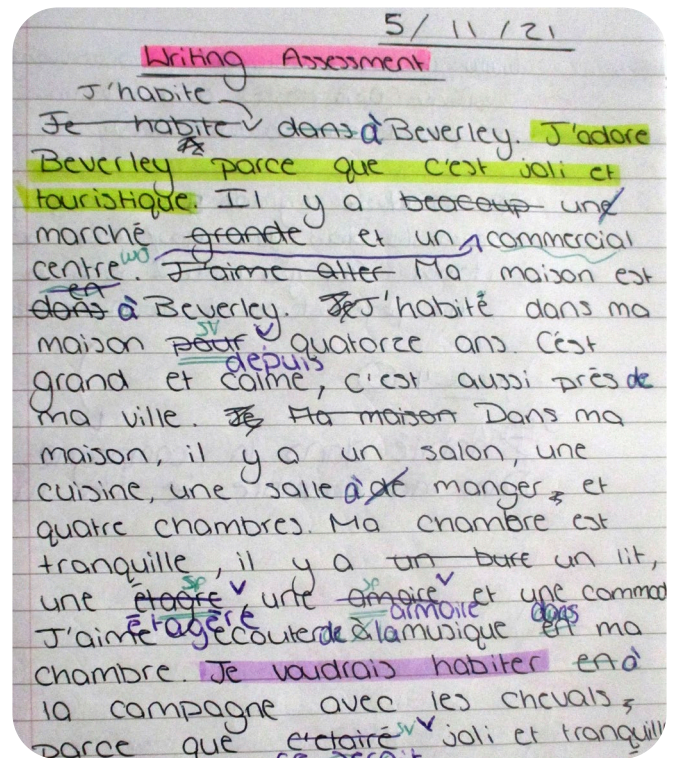 5/11/21
Writing Assessment
J'habite
Je habite dans à Beverley. J'adore
Beverley parce que c'est joli et
touristique. Il y a beacoup une
marché grande et un commercial
wo
centre. J'aime aller Ma maison est
en
dans à Beverley. Je J'habité dans ma
sv
maison pour quatorze ans. C'est
depuis
grand et calme, c'est aussi près de
ma ville. Ma maison Dans ma
maison, il y a un salon, une
cuisine, une salle à de manger, et
quatre chambres. Ma chambre est
tranquille, il y a un bure un lit,
sp sp
une étagre, une amoire et une commod
étagère armoire dans
J'aime écouter de à la musique en ma
chambre. Je voudrais habiter en à
la campagne avec les chevals,
sv
parce que c'etairé joli et tranquill
ce serait